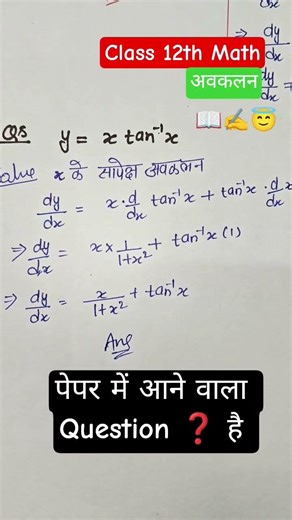 dy/dx
Class 12th Math
अवकलन
dy/dx =
📖✍️😇
Q8 y = x tan⁻¹x
x के सापेक्ष अवकलन
dy/dx = x · d/dx tan⁻¹x + tan⁻¹x · d/dx x
⇒ dy/dx = x × 1/1+x² + tan⁻¹x (1)
⇒ dy/dx = x/1+x² + tan⁻¹x
Ans
पेपर में आने वाला
Question ❓ है